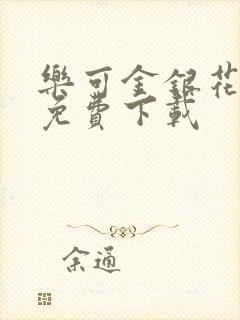 樂可金銀花
免費下載
余通